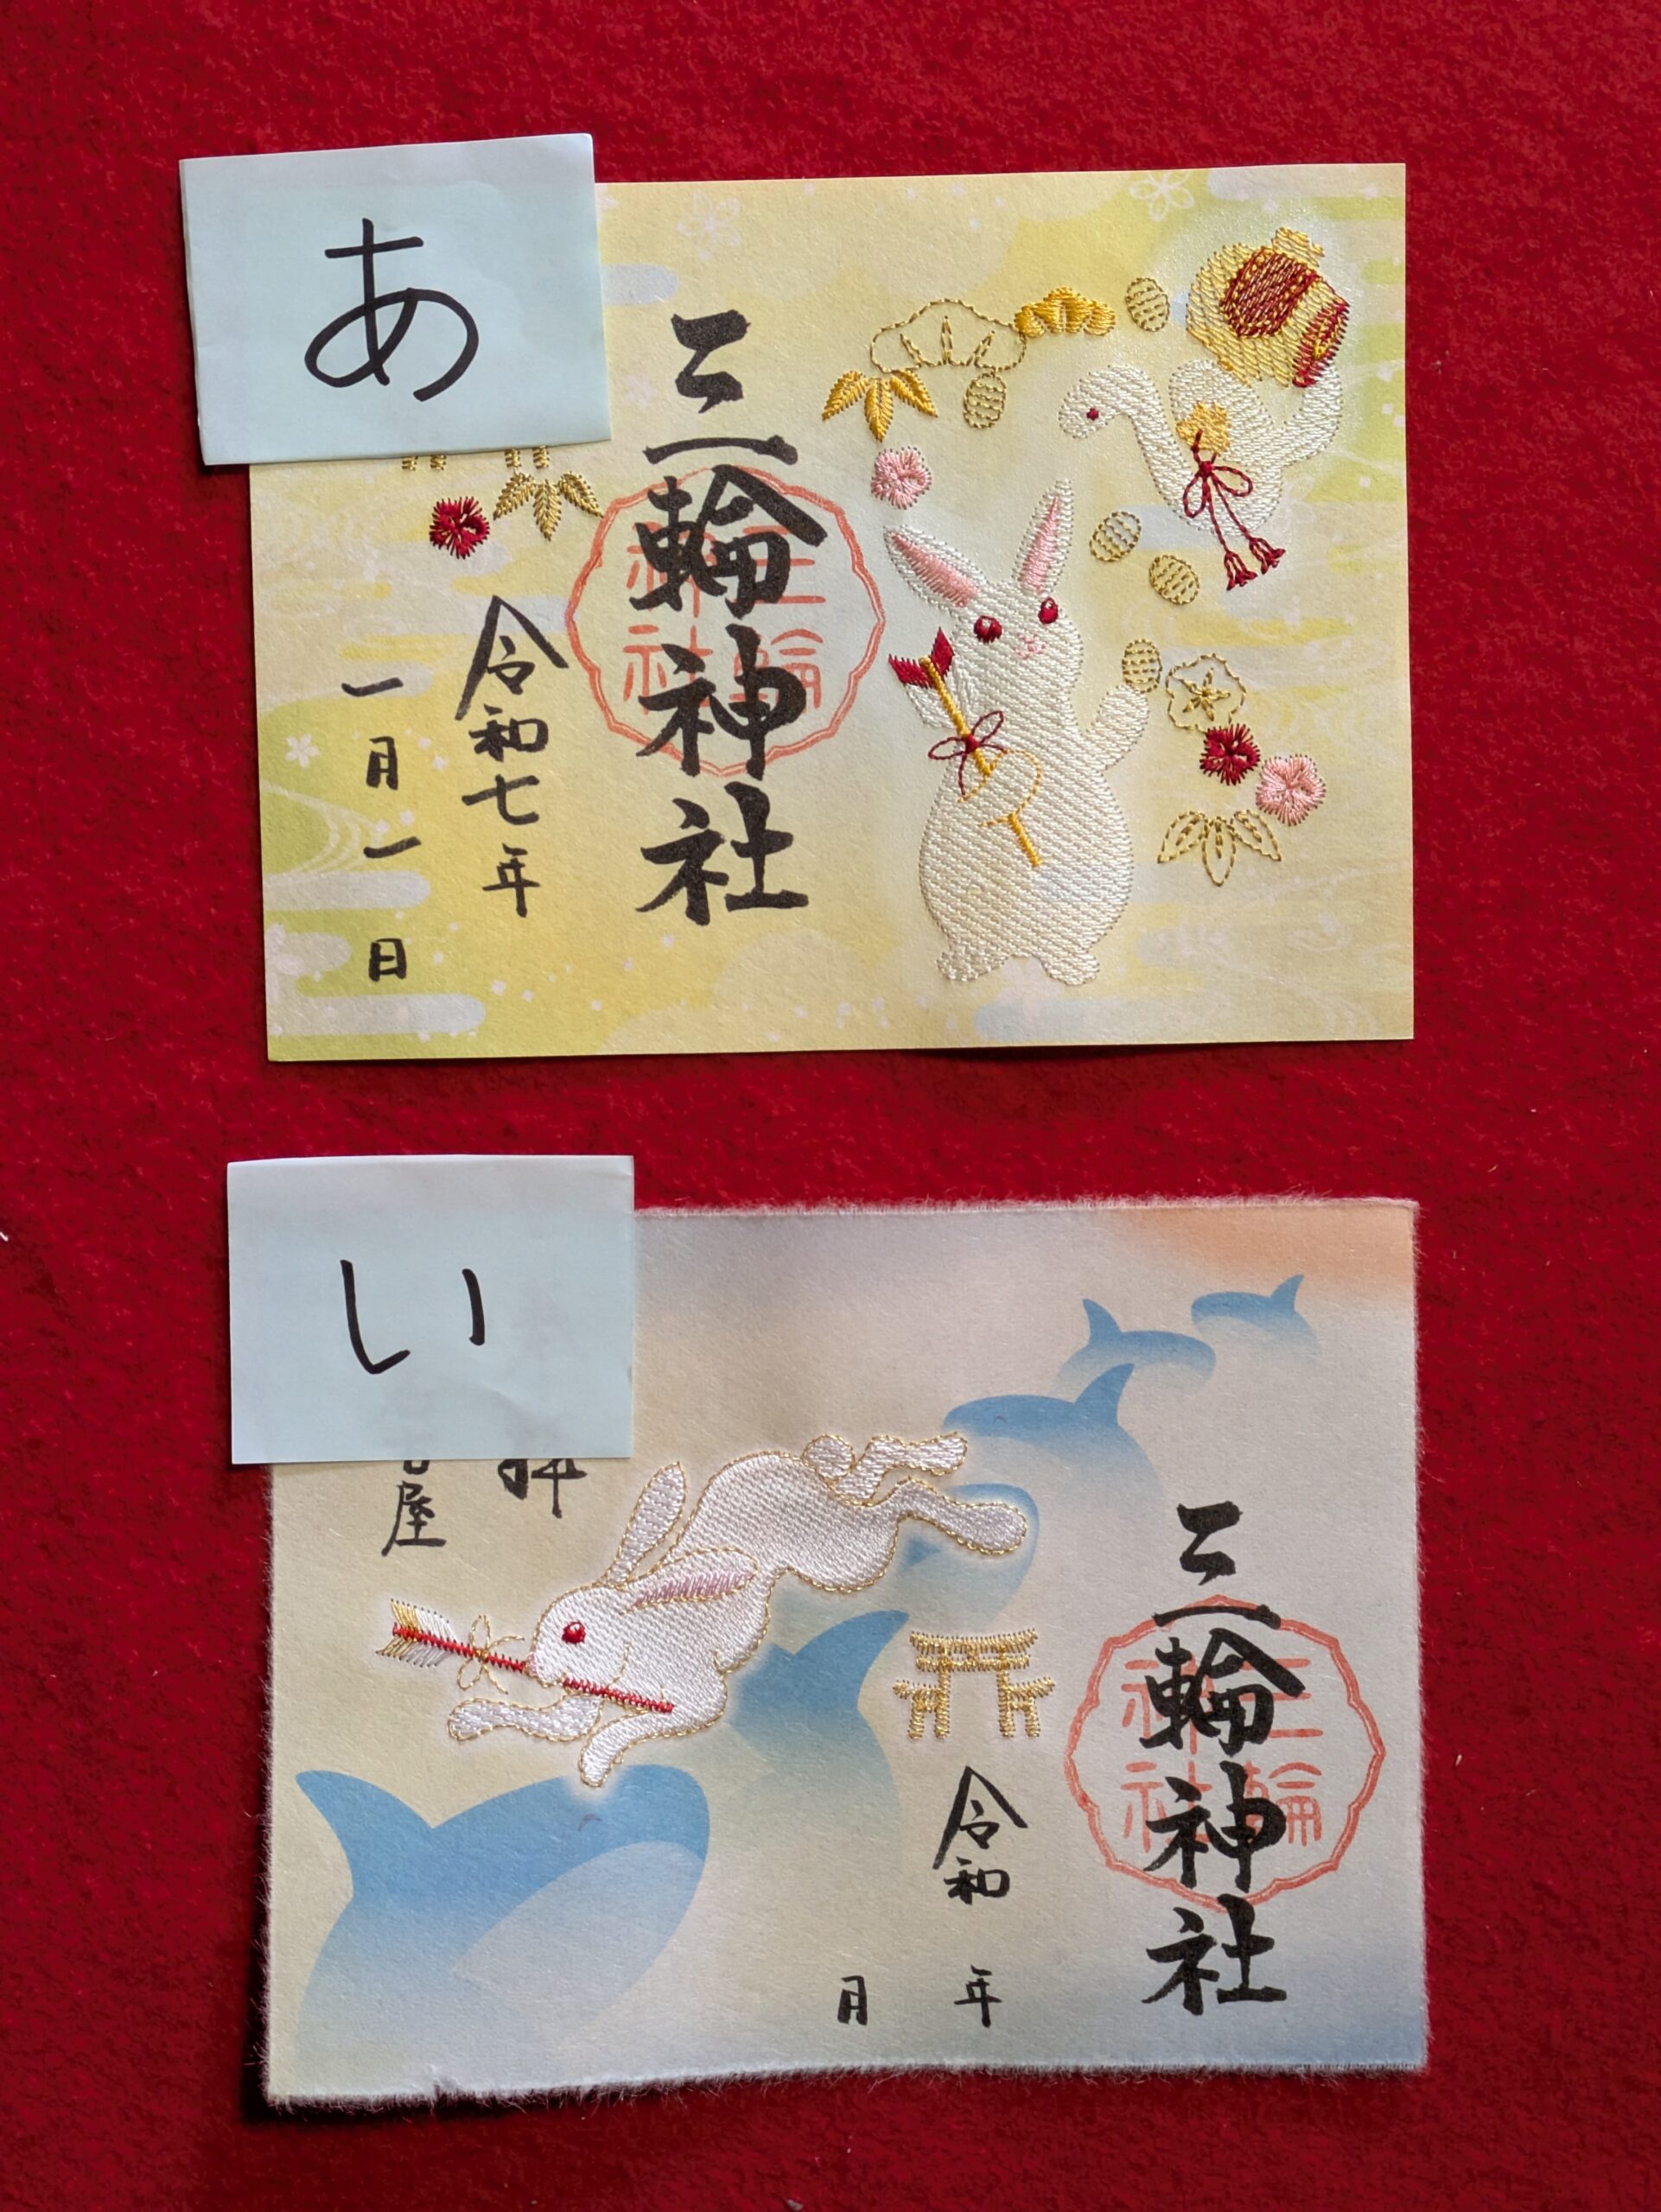 あ
三輪神社
三輪
神社
令和七年
一月一日
い
三輪神社
三輪
神社
令和 年
月
拝
屋